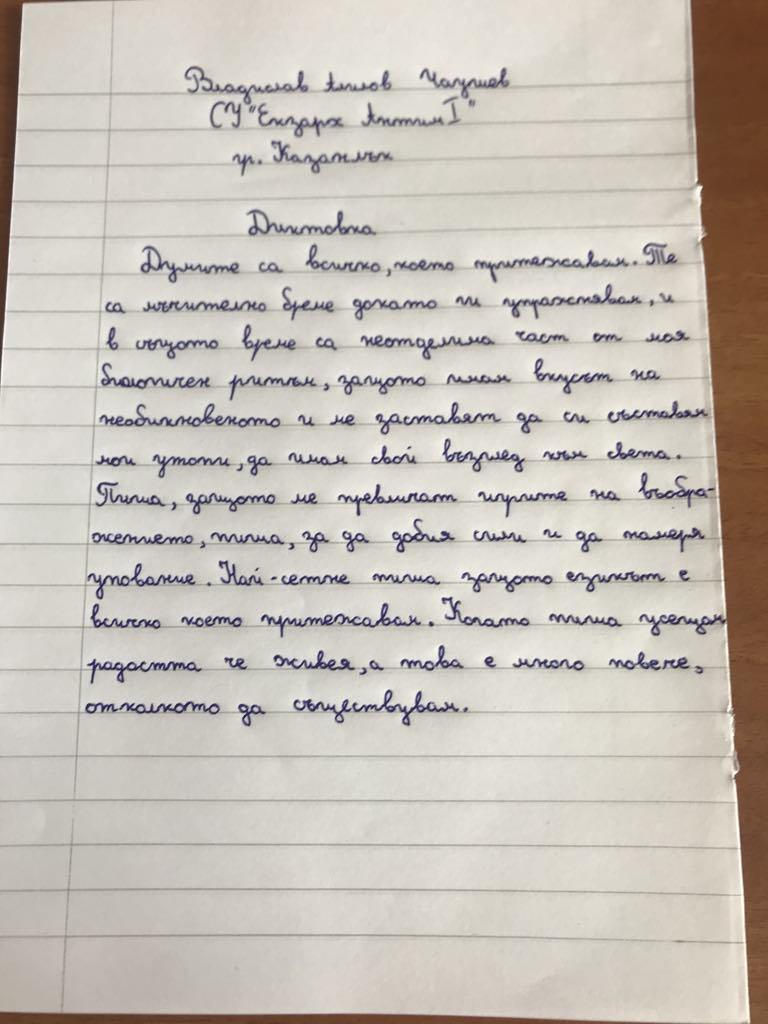 Владислав Чаушев
СУ "Екзарх Антим I"
гр. Казанлък
Диктовка
Думите са всичко, което притежавам. Те
са мъчително бреме докато ги упражнявам, и
в същото време са неотделима част от моя
биологичен ритъм, защото имам вкусът на
необикновеното и ме заставят да си съставям
мои утопи, да имам свой възглед към света.
Пиша, защото ме привличат игрите на въобра-
жението, пиша, за да добия сили и да намеря
упование. Най-сетне пиша защото езикът е
всичко което притежавам. Когато пиша усещам
радостта че живея, а това е много повече,
отколкото да съществувам.